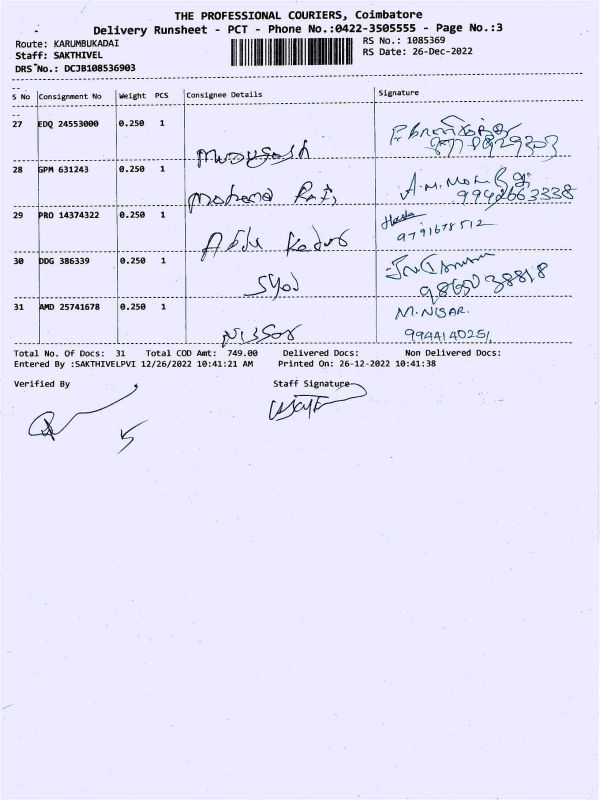 THE PROFESSIONAL COURIERS, Coimbatore
Delivery Runsheet - PCT - Phone No.:0422-3505555 - Page No.:3
Route: KARUMBUKADAI
RS No.: 1085369
Staff: SAKTHIVEL
RS Date: 26-Dec-2022
DRS No.: DCJB108536903
S No Consignment No Weight PCS Consignee Details Signature
27 EDQ 24553000 0.250 1
28 GPM 631243 0.250 1
9942663338
29 PRO 14374322 0.250 1
Abdu Kadar
9791678512
30 DDG 386339 0.250 1
Syod
9865038818
31 AMD 25741678 0.250 1
M.NISAR.
Nissar
9944140251
Total No. Of Docs: 31 Total COD Amt: 749.00 Delivered Docs: Non Delivered Docs:
Entered By :SAKTHIVELPVI 12/26/2022 10:41:21 AM Printed On: 26-12-2022 10:41:38
Verified By Staff Signature